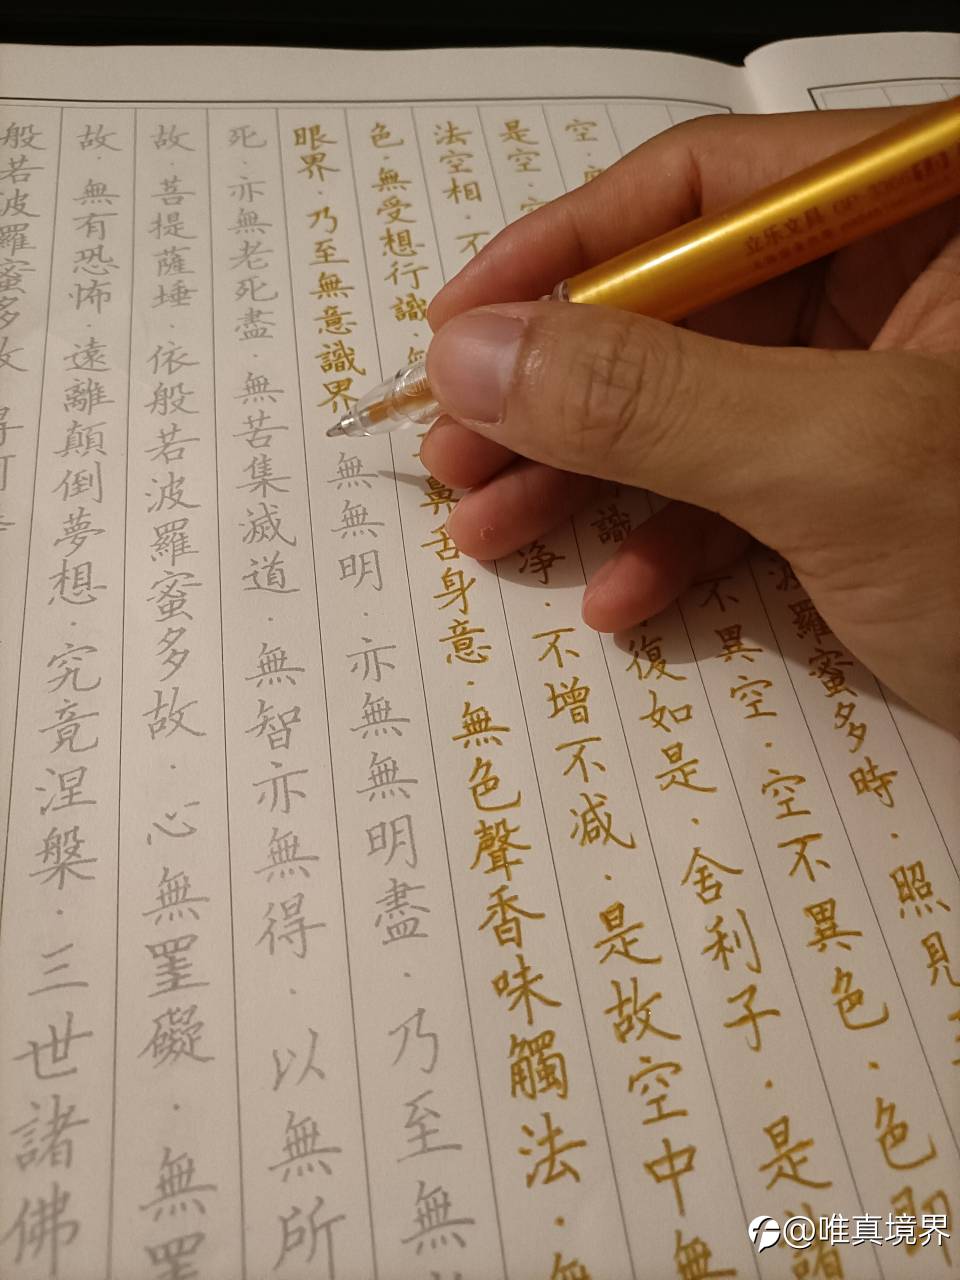 波羅蜜多時·照見
空·不異空·空不異色·色即
是空·識·復如是·舍利子·是諸
法空相·不淨·不增不減·是故空中無
色·無受想行識·無鼻舌身意·無色聲香味觸法·無
眼界·乃至無意識界·無無明·亦無無明盡·乃至無
死·亦無老死盡·無苦集滅道·無智亦無得·以無所
故·菩提薩埵·依般若波羅蜜多故·心無罣礙·無罣
故·無有恐怖·遠離顛倒夢想·究竟涅槃·三世諸佛
般若波羅蜜多故 得阿
立乐文具
@唯真境界